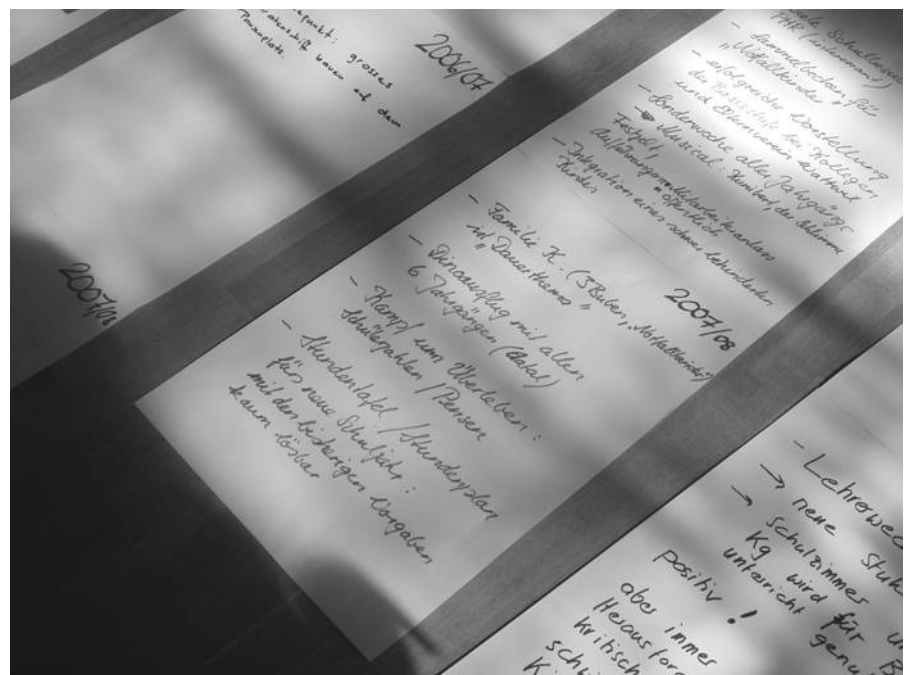 grosses
bauen auf dem
Pausenplatz.
2006/07
2007/08
PHR (intern)
- Sammelbecken für
"Notfallkinder"
- erfolgreiche Vorstellung
der Basisstufe bei Kollegen
und Elternverein Wattwil
- Sonderwoche aller Jahrgänge
Musical: Kunibert, der Schlimme
Festzelt!
öffentlich
- Integration eines schwer behinderten
Kindes
2007/08
- Familie K. (3 Buben, "Notfallkinder")
ist "Dauerthema"
- Dinoausflug mit allen
6 Jahrgängen (Aatal)
- Kampf um Überleben:
Schülerzahlen / Pensen
- Stundentafel / Stundenplan
fürs neue Schuljahr:
mit den bisherigen Vorgaben
kaum lösbar
- Lehrerwec
→ neue Stuh
→ Schulzimmer u
Kg wird für B
unterricht genu
positiv!
aber immer
Herausfor
kritisch
sch
Ki